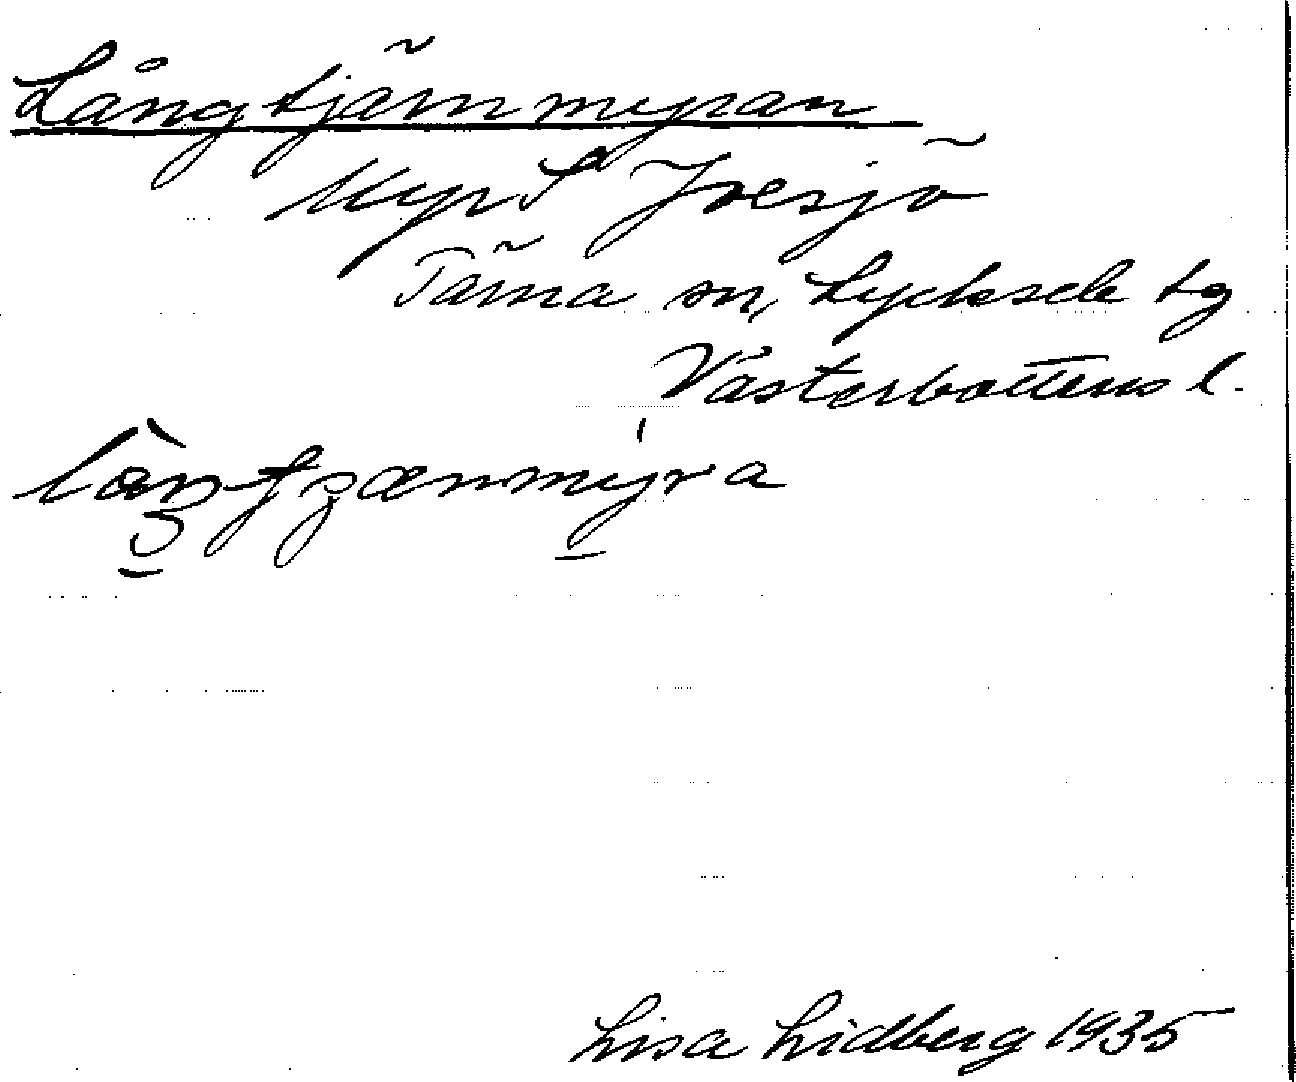 Långtjärnmyran
Myr S Joesjö
Tärna sn, Lycksele tg
Västerbottens l.
Lisa Lidberg 1935